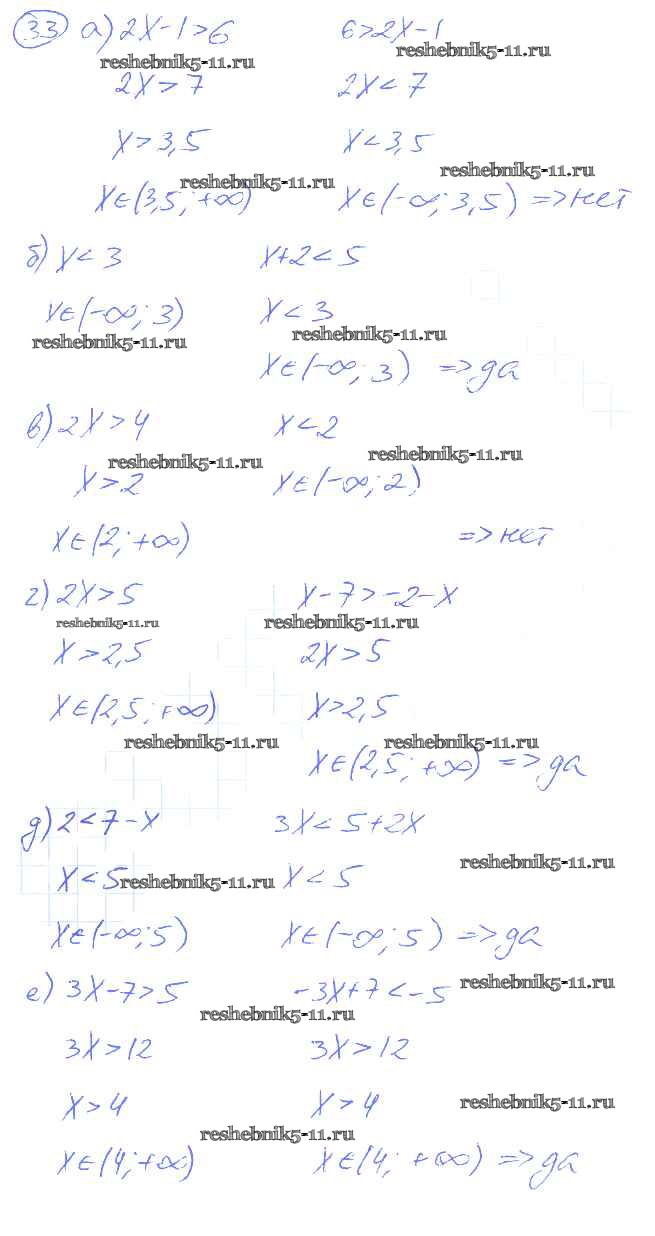 33 а) 2x-1>6 6>2x-1
reshebnik5-11.ru reshebnik5-11.ru
2x>7 2x<7
x>3,5 x<3,5
reshebnik5-11.ru reshebnik5-11.ru
x∈(3,5; +∞) x∈(-∞; 3,5) => нет
б) x<3 x+2<5
x∈(-∞; 3) x<3
reshebnik5-11.ru reshebnik5-11.ru
x∈(-∞; 3) => да
в) 2x>4 x<2
reshebnik5-11.ru reshebnik5-11.ru
x>2 x∈(-∞; 2)
x∈(2; +∞) => нет
г) 2x>5 x-7>-2-x
reshebnik5-11.ru reshebnik5-11.ru
x>2,5 2x>5
x∈(2,5; +∞) x>2,5
reshebnik5-11.ru reshebnik5-11.ru
x∈(2,5; +∞) => да
д) 2<7-x 3x<5+2x
reshebnik5-11.ru
x<5 reshebnik5-11.ru x<5
x∈(-∞; 5) x∈(-∞; 5) => да
reshebnik5-11.ru
е) 3x-7>5 -3x+7<-5
reshebnik5-11.ru
3x>12 3x>12
x>4 x>4
reshebnik5-11.ru
reshebnik5-11.ru
x∈(4; +∞) x∈(4; +∞) => да